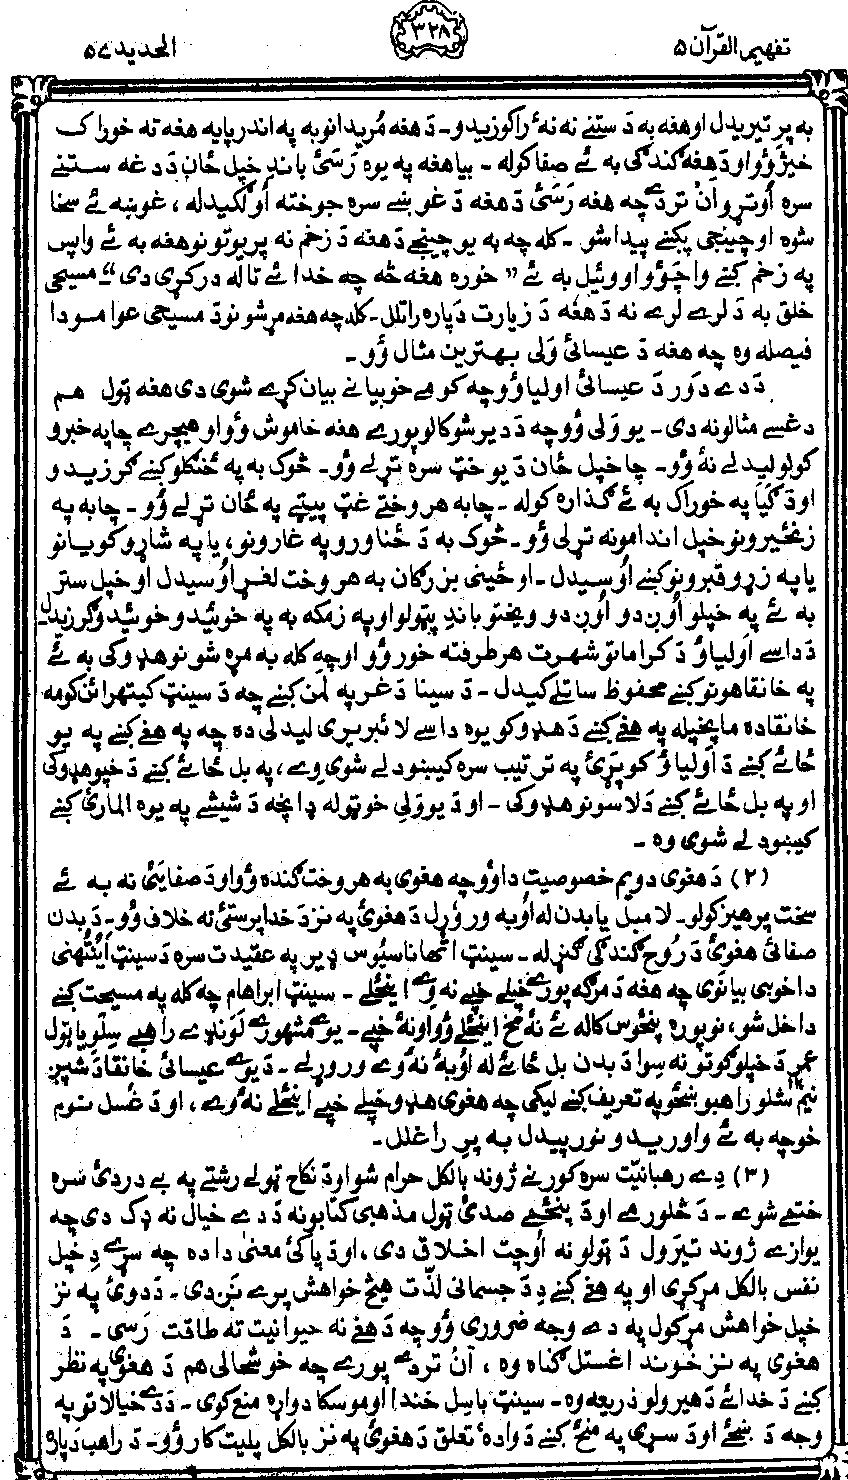 تفهیم القرآن ۵
۳۲۸
الحدید ۵۷
به پر تیریدل او هغه به د ستنے نه نهٔ راکوزیدو۔ د هغه مُریدانو به په اندر پایه هغه ته خوراک
خیژوؤ او د هغه گندگی به ئے صفا کوله ۔ بیا هغه په یوه رَسَیٔ باندِ خپل ځان دَ دغه ستنے
سره اُوتړو ان تردے چه هغه رَسَیٔ دَ هغه دَ غوښے سره جوخته اُولگیدله ، غوښه ئے سخا
شوه او چینجی پکښے پیدا شو ۔ کله چه به یو چینجے دَ هغه دَ زخم نه پریوتو نو هغه به ئے واپس
په زخم کښے واچوؤ او وئیل به ئے " خوره هغه څه چه خدائے تاله درکړی دی " ۔ مسیحی
خلق به دَ لرے لرے نه دَ هغه دَ زیارت دَپاره راتلل ۔ کله چه هغه مړ شو نو دَ مسیحی عوامو دا
فیصله وه چه هغه دَ عیسائی ولی بهترین مثال وُو ۔
دَ دے دَور دَ عیسائی اولیاؤ چه کومے خوبیانے بیان کړے شوی دی هغه ټول هم
دغسے مثالونه دی ۔ یو ولی وُو چه دَ دیرشو کالو پورے هغه خاموش وُو او هیچرے چا په خبرو
کولو لیدلے نهٔ وُو ۔ چا خپل ځان دَ یو خټ سره تړلے وُو ۔ څوک به په ځنګلو کښے گرزیدو
او دَ گیا په خوراک به ئے گذاره کوله ۔ چا به هر وختے غټ پیټے په ځان تړلے وُو ۔ چا به په
زنځیرونو خپل اندامونه تړلی وُو ۔ څوک به دَ ځناورو په غارونو ، یا په شاړو کوهیانو
یا په زړو قبرونو کښے اُوسیدل ۔ او ځینی بزرگان به هر وخت لغړ اوسیدل او خپل ستر
به ئے په خپلو اُوږدو اُوږدو ویښتو باندِ پټولو او په زمکه به په خوئیدو خوئیدو گرزیدل ۔
دَ داسے اَولیاؤ دَ کراماتو شهرت هر طرفته خور وُو او چه کله به مړه شو نو هډوکی به ئے
په خانقاهونو کښے محفوظ ساتلے کیدل ۔ دَ سینا دَ غر په لمن کښے چه دَ سینټ کیتھرائن کومه
خانقاه ده ما پخپله په هغے کښے دَ هډوکو یوه داسے لائبریری لیدلی ده چه په هغے کښے په یو
ځائے کښے دَ اَولیاؤ کوپړئ په ترتیب سره کیښودلے شوی وے ، په بل ځائے کښے دَ خپو هډوکی
او په بل ځائے کښے دَ لاسونو هډوکی ۔ او دَ یو ولی خو ټوله ډانچه دَ شیشے په یوه المارئ کښے
کیښودلے شوی وه ۔
(۲) دَ هغوی دویم خصوصیت دا وُو چه هغوی به هر وخت گنده وُو او دَ صفایئ نه به ئے
سخت پرهیز کولو ۔ لامبل یا بدن له اُوبه وروړل دَ هغوی په نزد خدا پرستئ نه خلاف وُو ۔ دَ بدن
صفائی هغوی دَ رُوح گندگی گنړله ۔ سینټ اتھاناسیُوس ډیر په عقیدت سره دَ سینټ اَینټھنی
دا خوبی بیانوی چه هغه دَ مرگه پورے خپلے خپے نه وے اینځلے ۔ سینټ ابراهام چه کله په مسیحیت کښے
داخل شو ، نو پوره پنځوس کاله ئے نهٔ مخ اینځلے وُو او نهٔ خپے ۔ یوے مشهورے لَوندے راهبے سِلویا ټول
عمر دَ خپلو گوتو نه سوا دَ بدن بل ځائے له اُوبهٔ نهٔ وے وروړلے ۔ دَ یوے عیسائی خانقاه دَ شپږ
نیم شلو راهبو ښځو په تعریف کښے لیکی چه هغوی هډو خپلے خپے اینځلے نهٔ وے ، او دَ غُسل نوم
خو چه به ئے واوریدو نو رپیدل به پرِ راغلل ۔
(۳) دِے رهبانیّت سره کورنے ژوند بالکل حرام شو او دَ نکاح ټولے رشتے په بے دردئ سره
ختمے شوے ۔ دَ څلورمے او دَ پنځمے صدئ ټول مذهبی کتابونه دَ دے خیال نه ډک دی چه
یوازے ژوند تیرول دَ ټولو نه اُوچت اخلاق دی ، او دَ پاکئ معنیٰ دا ده چه سړے دِ خپل
نفس بالکل مړ کړی او په هغے کښے دِ دَ جسمانی لذّت هیڅ خواهش پرے نږدی ۔ دَ دوی په نز
خپل خواهش مړ کول په دے وجه ضروری وُو چه دَ هغے نه حیوانیت ته طاقت رَسی ۔ دَ
هغوی په نز خوند اغستل گناه وه ، آن تردے پورے چه خوشحالی هم دَ هغوی په نظر
کښے دَ خدائے دَ هیرولو ذریعه وه ۔ سینټ باسِل خندا او موسکا دواړه منع کوی ۔ دَ دے خیالاتو په
وجه دَ ښځے او دَ سړی په منځ کښے دَ واده تعلق دَ هغوی په نز بالکل پلیت کار وُو ۔ دَ راهب دَپاره